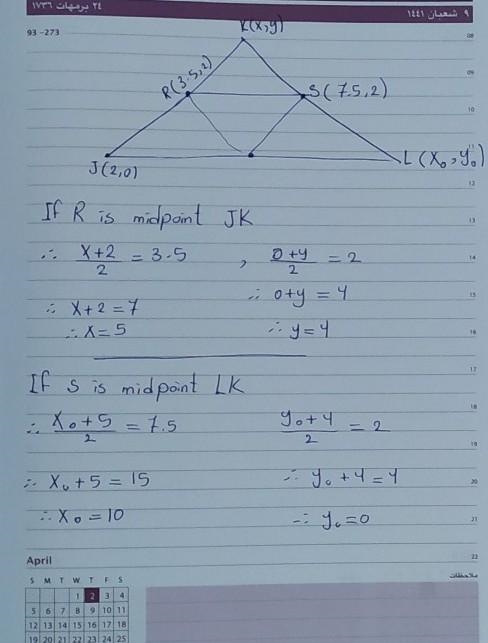 ٩ شعبان ١٤٤١
٢٤ برمهات ١٧٣٦
93 -273
08
09
10
11
12
13
14
15
16
17
18
19
20
21
22
K(x,y)
R(3.5,2)
S(7.5,2)
J(2,0)
L(x₀,y₀)
If R is midpoint JK
∴ (x+2)/2 = 3.5 , (0+y)/2 = 2
∴ x+2=7 ∴ 0+y = 4
∴ x=5 ∴ y=4
If S is midpoint LK
∴ (x₀+5)/2 = 7.5 (y₀+4)/2 = 2
∴ x₀+5=15 ∴ y₀+4=4
∴ x₀=10 ∴ y₀=0
April
ملاحظات
S M T W T F S
1 2 3 4
5 6 7 8 9 10 11
12 13 14 15 16 17 18
19 20 21 22 23 24 25